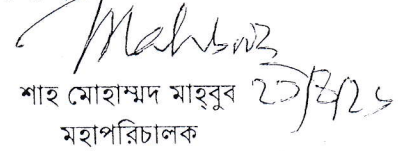 Mahbub
শাহ মোহাম্মদ মাহ্‌বুব
মহাপরিচালক